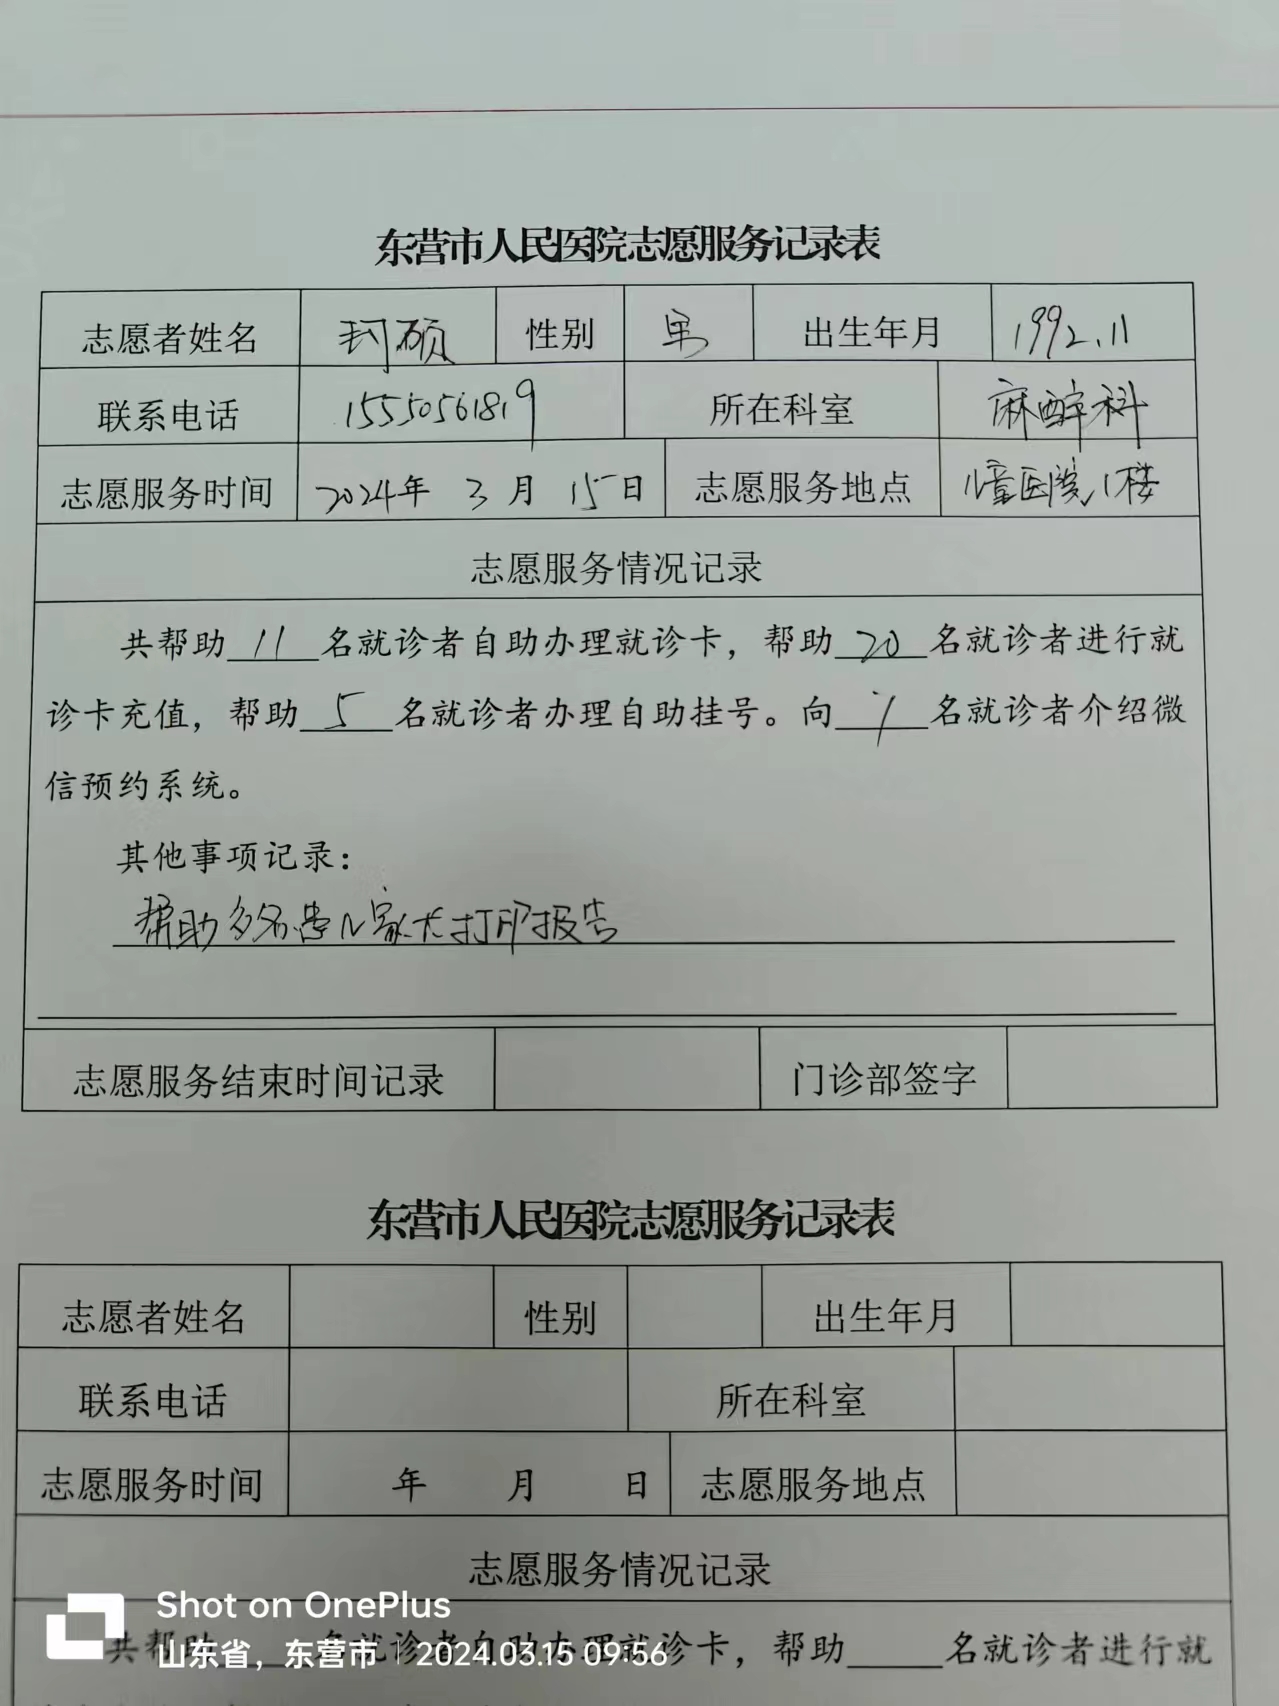 东营市人民医院志愿服务记录表
志愿者姓名 珂硕 性别 男 出生年月 1992.11
联系电话 15550561819 所在科室 麻醉科
志愿服务时间 2024年 3 月 15日 志愿服务地点 儿童医院1楼
志愿服务情况记录
共帮助 11 名就诊者自助办理就诊卡，帮助 20 名就诊者进行就
诊卡充值，帮助 5 名就诊者办理自助挂号。向 名就诊者介绍微
信预约系统。
其他事项记录：
帮助多名患儿家长打印报告
志愿服务结束时间记录 门诊部签字
东营市人民医院志愿服务记录表
志愿者姓名 性别 出生年月
联系电话 所在科室
志愿服务时间 年 月 日 志愿服务地点
志愿服务情况记录
共帮助 名就诊者自助办理就诊卡，帮助 名就诊者进行就
Shot on OnePlus
山东省，东营市 | 2024.03.15 09:56